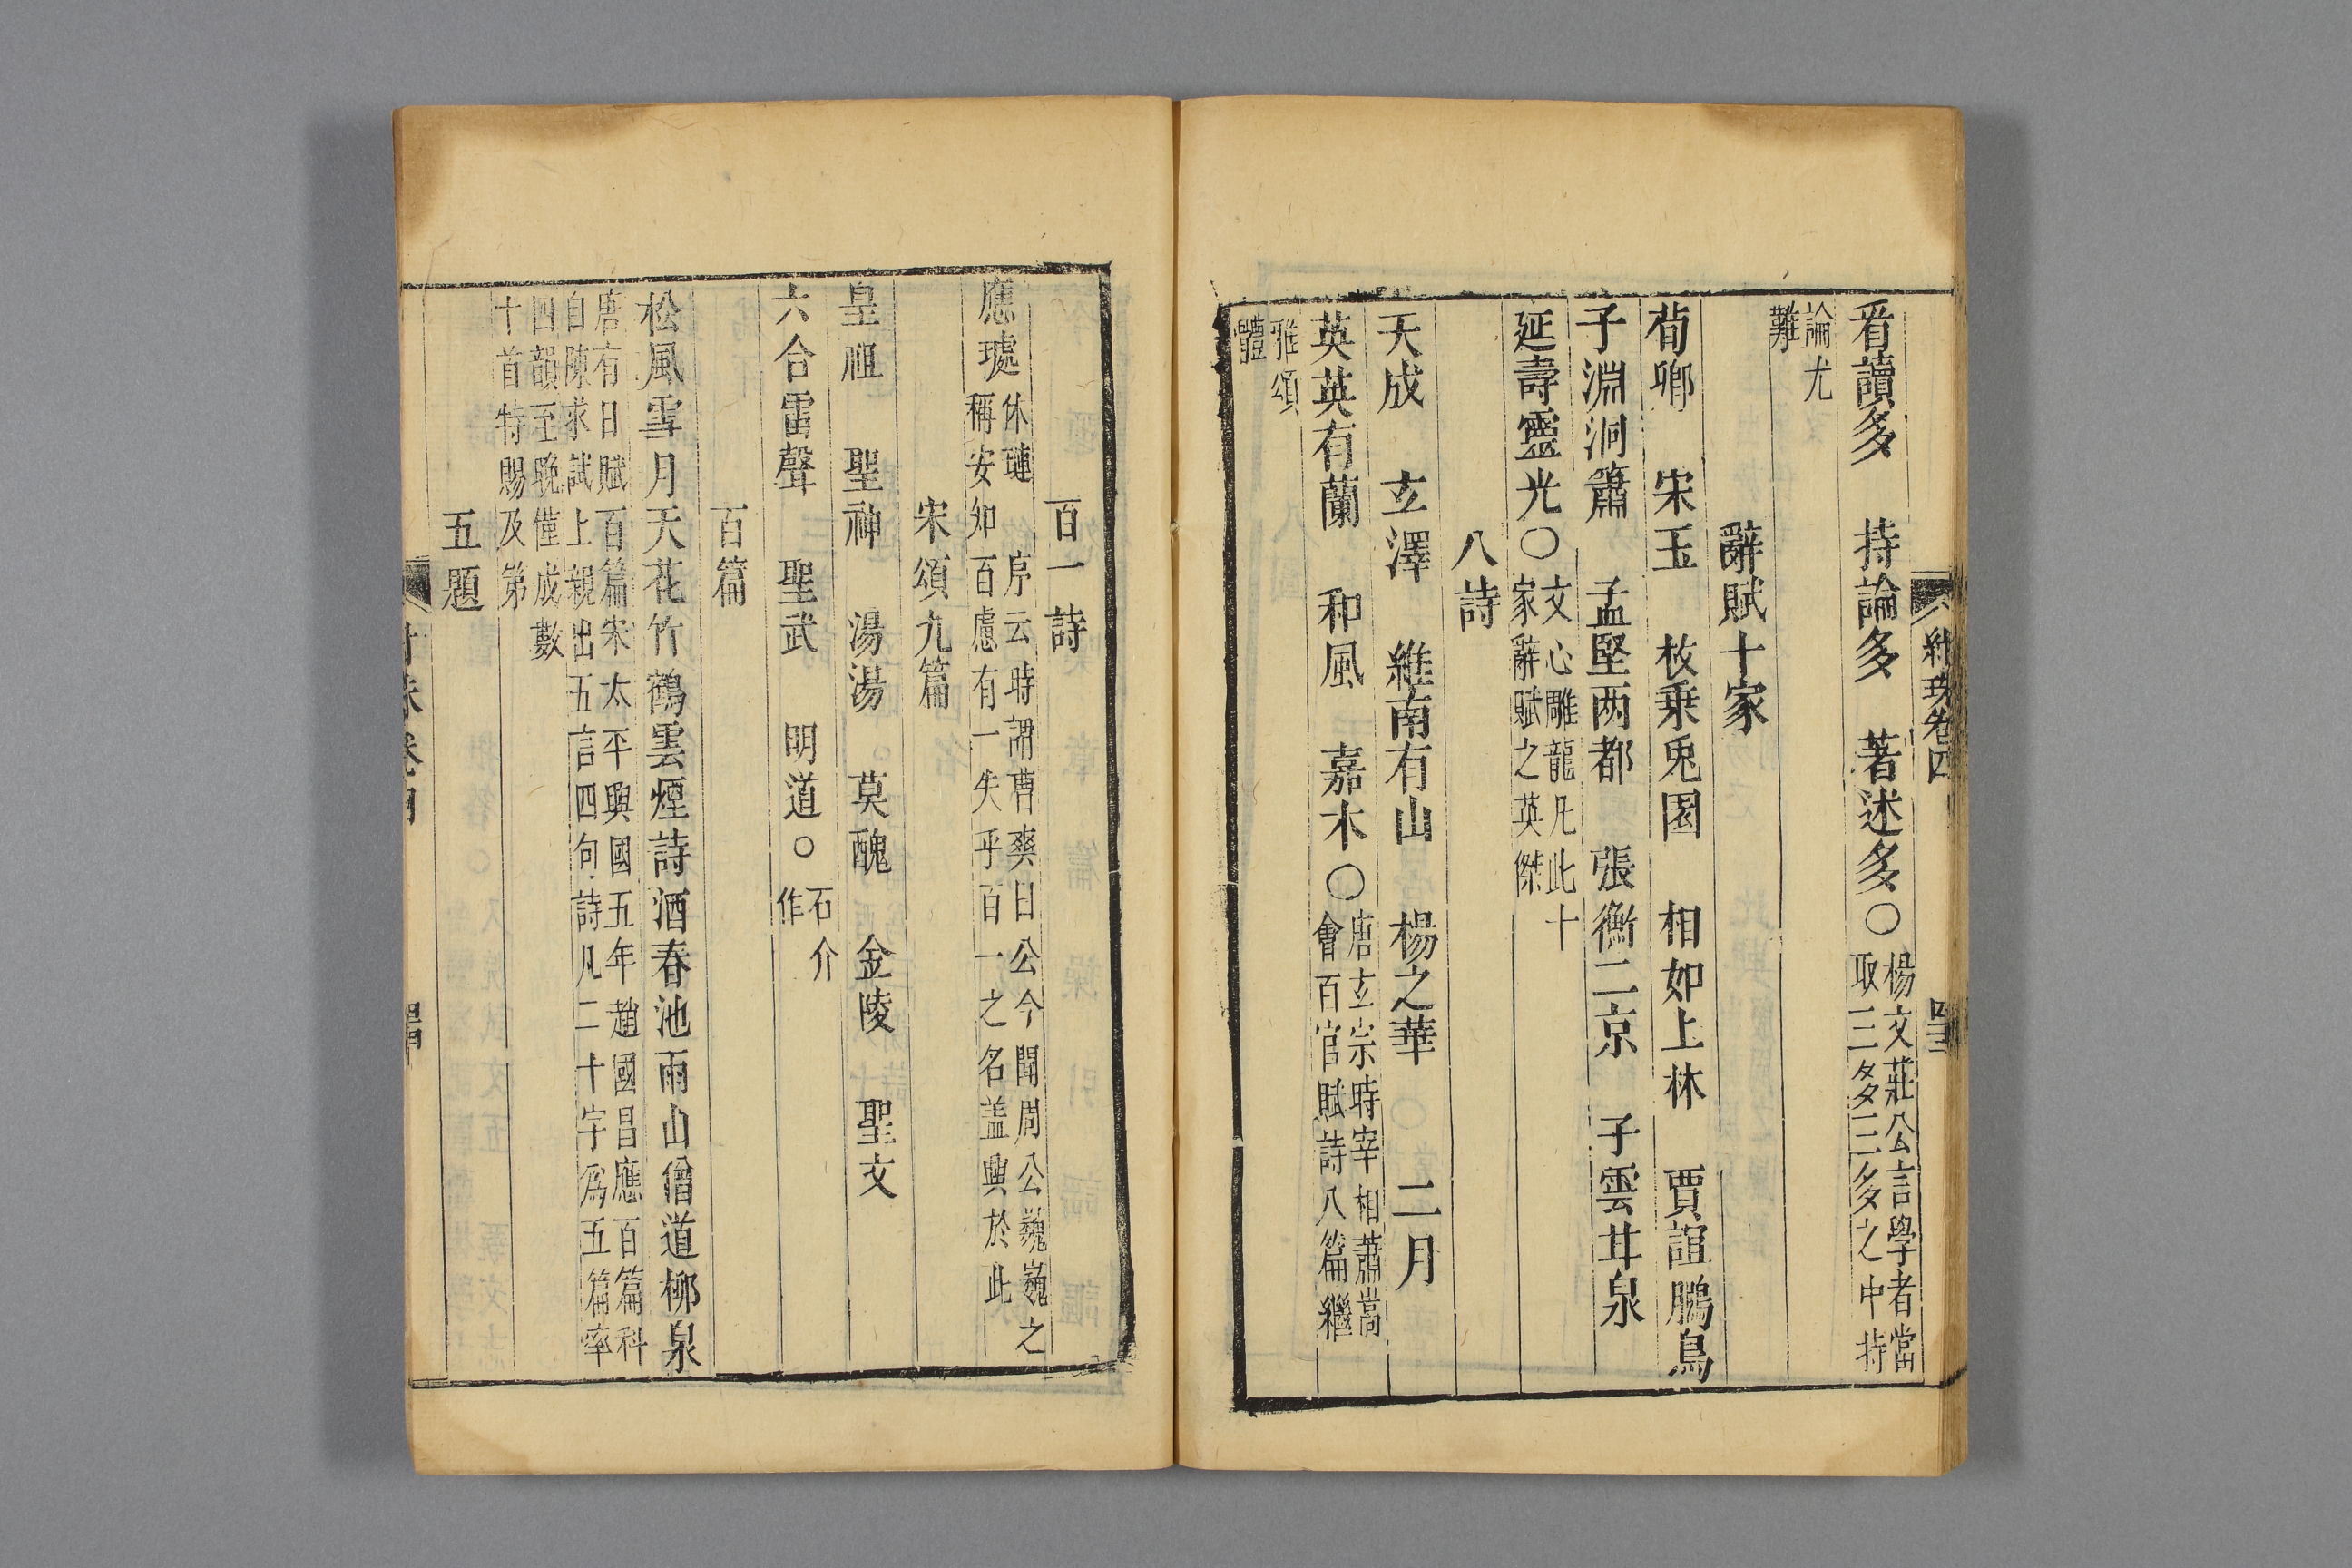 紺珠卷四
看讀多 持論多 著述多○
楊文莊公言學者當
取三多三多之中持
論尤
難
辭賦十家
荀卿 宋玉 枚乗兎園 相如上林 賈誼鵬鳥
子淵洞簫 孟堅两都 張衡二京 子雲甘泉
延壽靈光○
文心雕龍凡此十
家辭賦之英傑
八詩
天成 玄澤 維南有山 楊之華 二月
英英有蘭 和風 嘉木○
唐玄宗時宰相蕭嵩
會百官賦詩八篇繼
雅頌
體
百一詩
應璩
休璉 序云時謂曹爽曰公今聞周公巍巍之
稱安知百慮有一失乎百一之名盖興於此
宋頌九篇
皇祖 聖神 湯湯 莫醜 金陵 聖文
六合雷聲 聖武 明道○
石介
作
百篇
松風雪月天花竹鶴雲煙詩酒春池雨山僧道柳泉
唐有日賦百篇宋太平興國五年趙國昌應百篇科
自陳求試上親出五言四句詩凡二十字爲五篇率
四韻至晚僅成數
十首特賜及第
五題